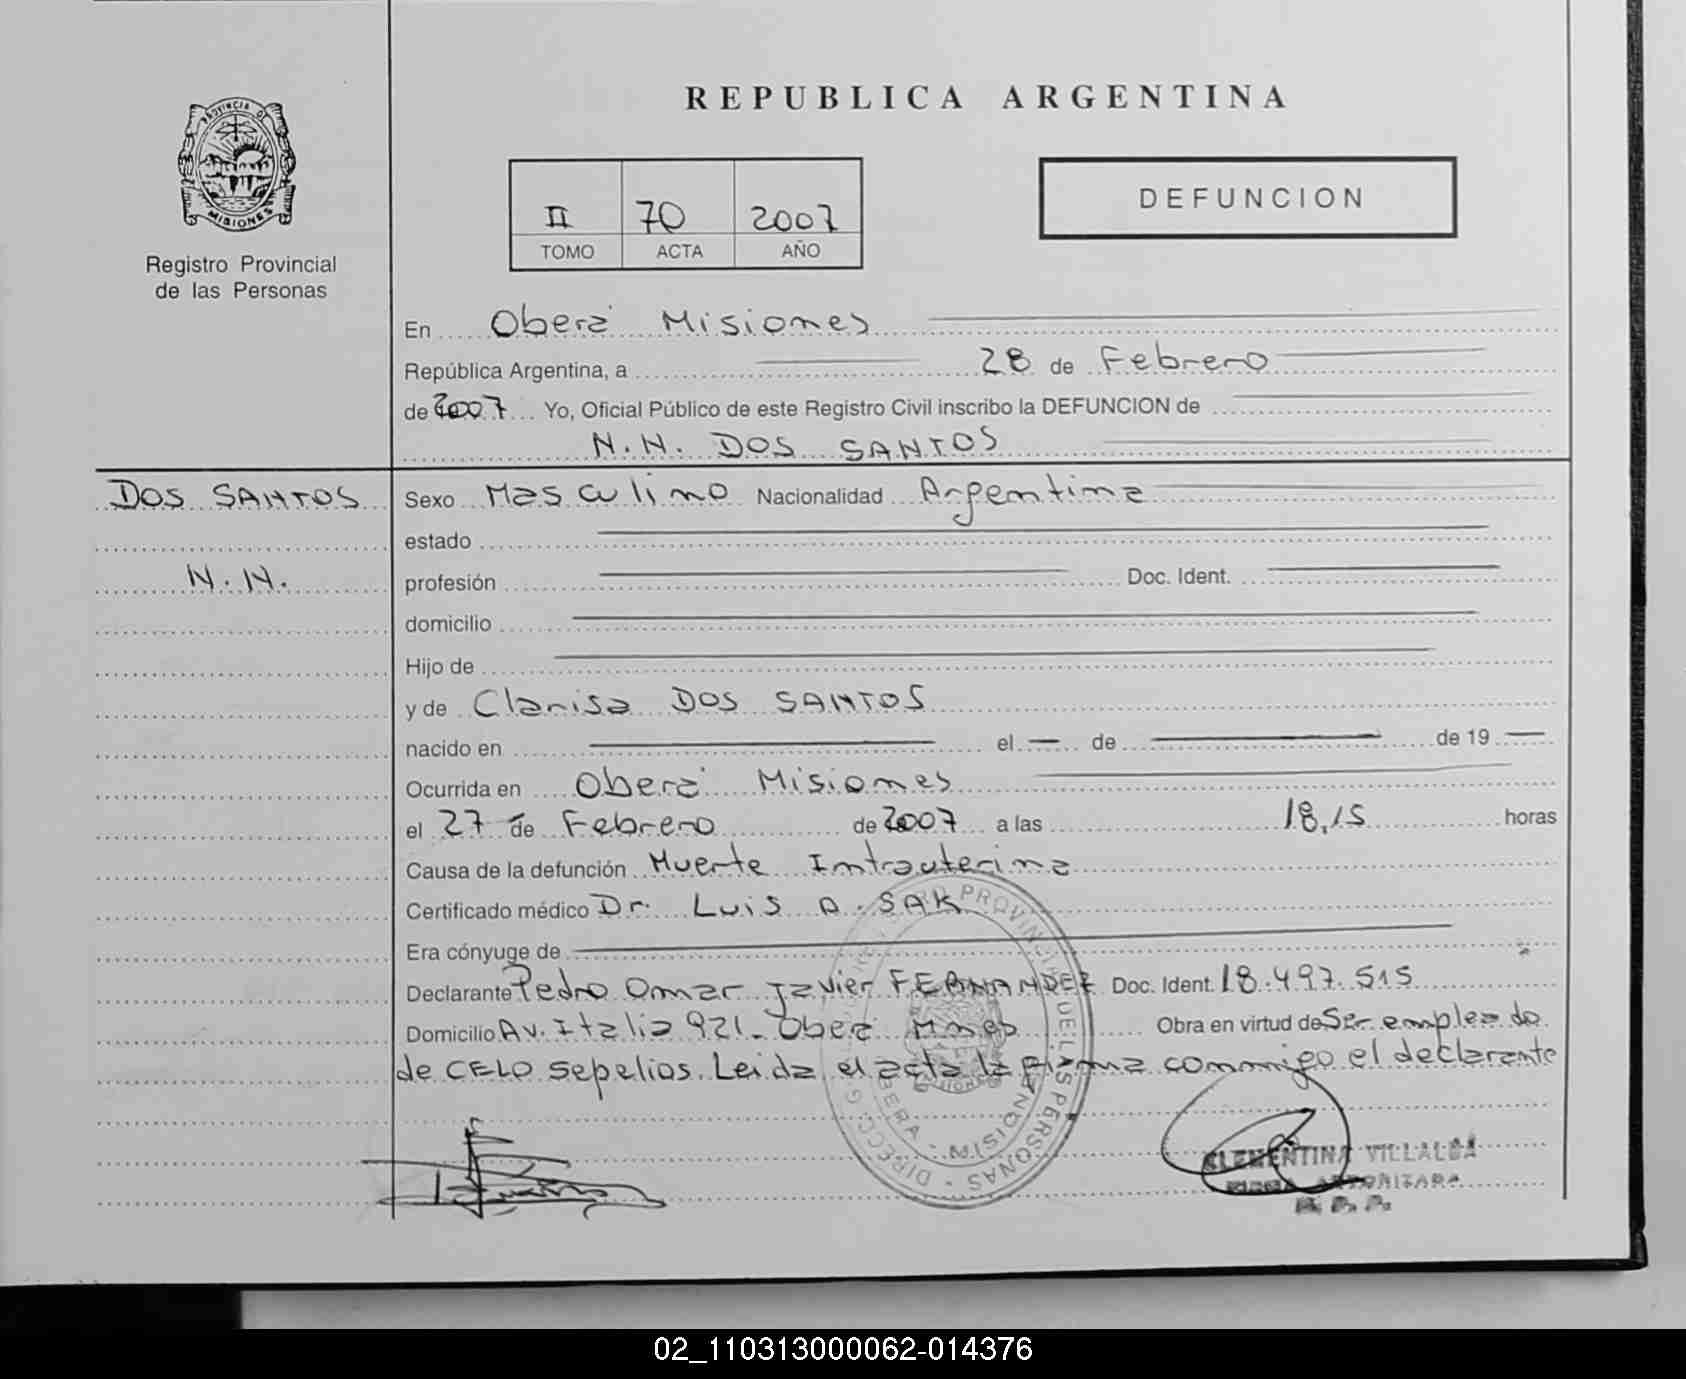 REPUBLICA ARGENTINA
PROVINCIA DE
MISIONES
Registro Provincial
de las Personas
II 70 2007
TOMO ACTA AÑO
DEFUNCION
En Oberá Misiones
República Argentina, a 28 de Febrero
de 2007 Yo, Oficial Público de este Registro Civil inscribo la DEFUNCION de
N.N. DOS SANTOS
DOS SANTOS
N.N.
Sexo Masculino Nacionalidad Argentina
estado
profesión Doc. Ident.
domicilio
Hijo de
y de Clarisa DOS SANTOS
nacido en el de de 19
Ocurrida en Oberá Misiones
el 27 de Febrero de 2007 a las 18,15 horas
Causa de la defunción Muerte Intrauterina
Certificado médico Dr. Luis A. SAK
Era cónyuge de
Declarante Pedro Omar Javier FERNANDEZ Doc. Ident. 18.497.515
Domicilio Av. Italia 921- Oberá Mnes Obra en virtud de Ser empleado
de CELO Sepelios. Leida el acta la firma conmigo el declarante
PROVINCIAL DE LAS PERSONAS
OBERA - MISIONES
CLEMENTINA VILLALBA
FIRMA AUTORIZADA
02_110313000062-014376